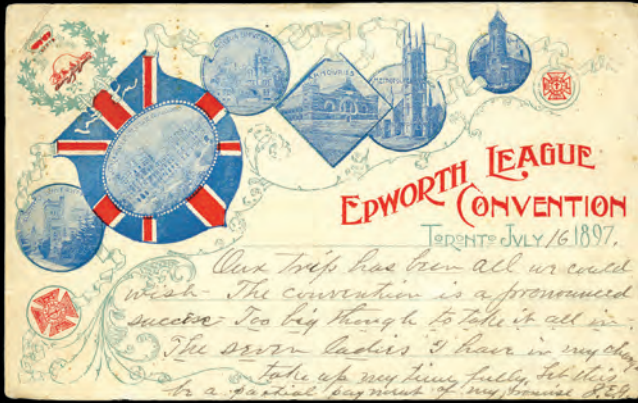 VICTORIA UNIVERSITY
ARMOURIES
METROPOLITAN
EPWORTH LEAGUE
CONVENTION
TORONTO JULY 16 1897.
Our trip has been all we could
wish - The convention is a pronounced
success - Too big though to take it all in.
The seven ladies I have in my charge
take up my time fully. Let this
be a partial payment of my promise